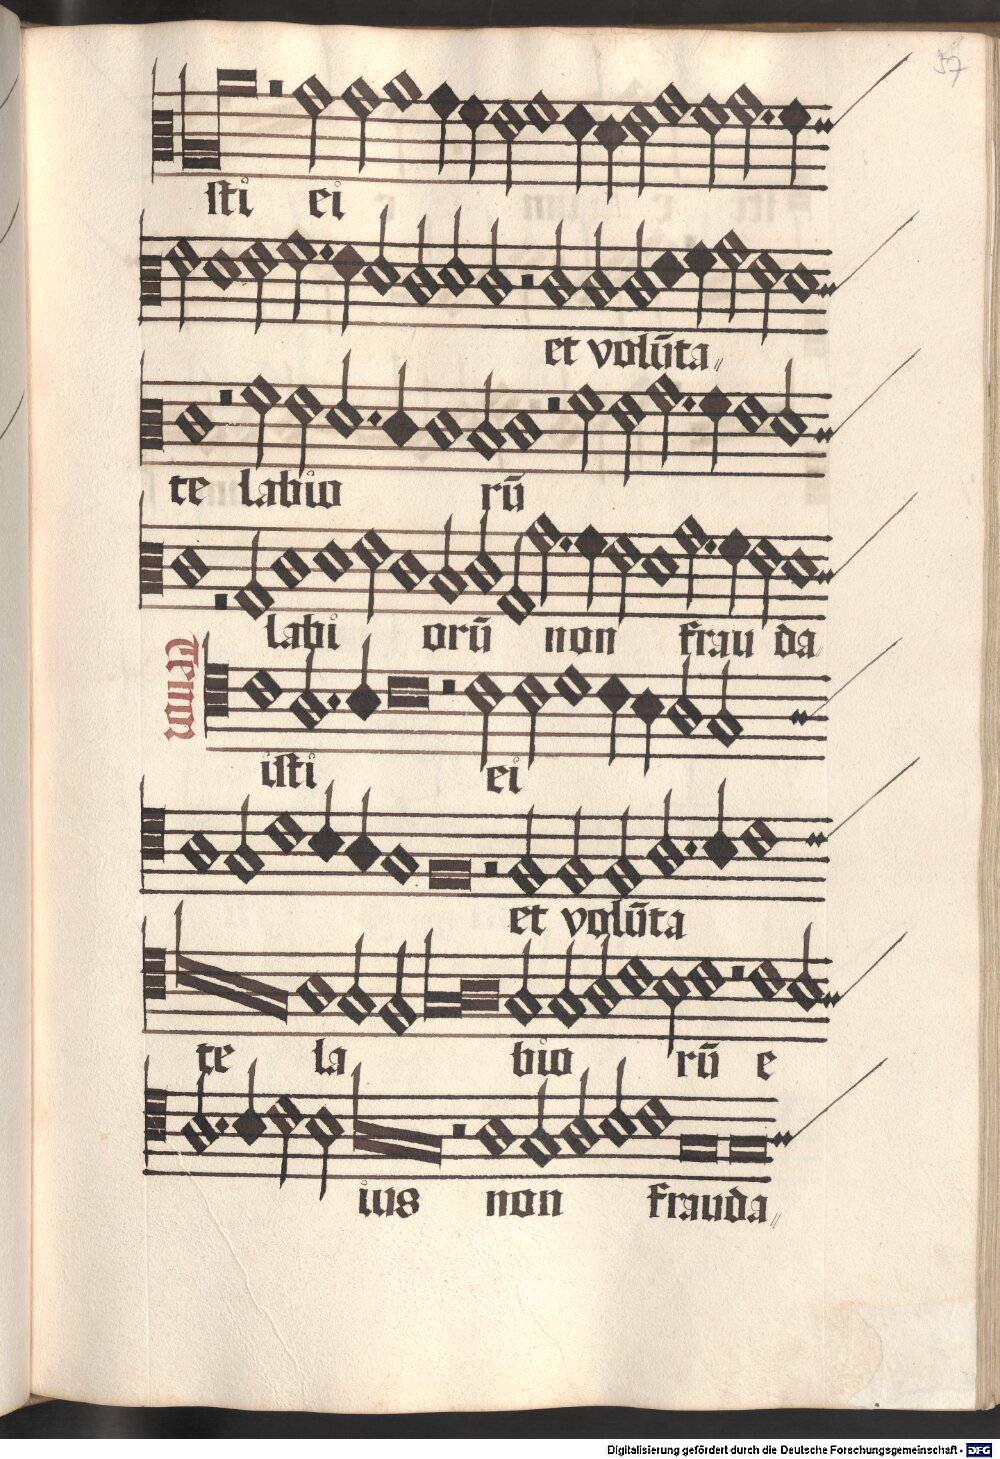 57
sti ei
et volūta
te labio rū
labi orū non frau da
Tenor
isti ei
et volūta
te la bio rū e
ius non frauda
Digitalisierung gefördert durch die Deutsche Forschungsgemeinschaft - DFG